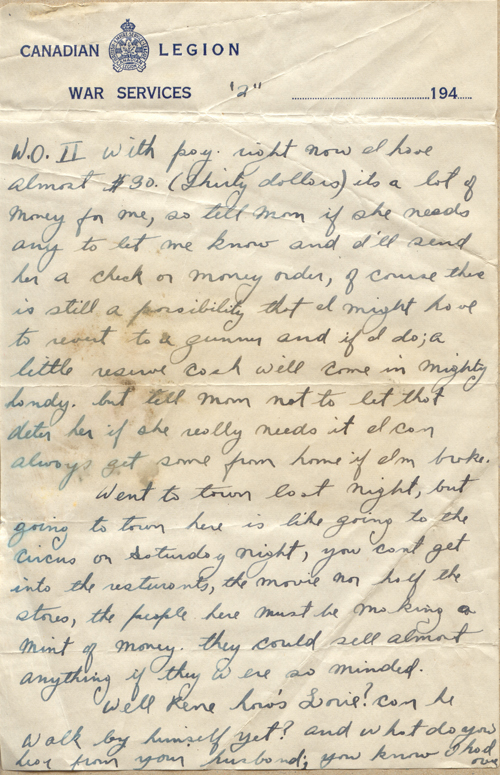 CANADIAN LEGION
WAR SERVICES "2" 194
W.O. II with pay. right now I have
almost $30. (thirty dollars) its a lot of
money for me, so tell mom if she needs
any to let me know and I'll send
her a check or money order, of course there
is still a possibility that I might have
to revert to a gunner and if I do; a
little reserve cash will come in mighty
handy. but tell mom not to let that
deter her if she really needs it I can
always get some from home if I'm broke.
Went to town last night, but
going to town here is like going to the
circus on Saturday night, you cant get
into the resturants, the movie nor half the
stores, the people here must be making a
mint of money. they could sell almost
anything if they were so minded.
Well Rene how's Lorie? can he
walk by himself yet? and what do you
hear from your husband; you know I had
over